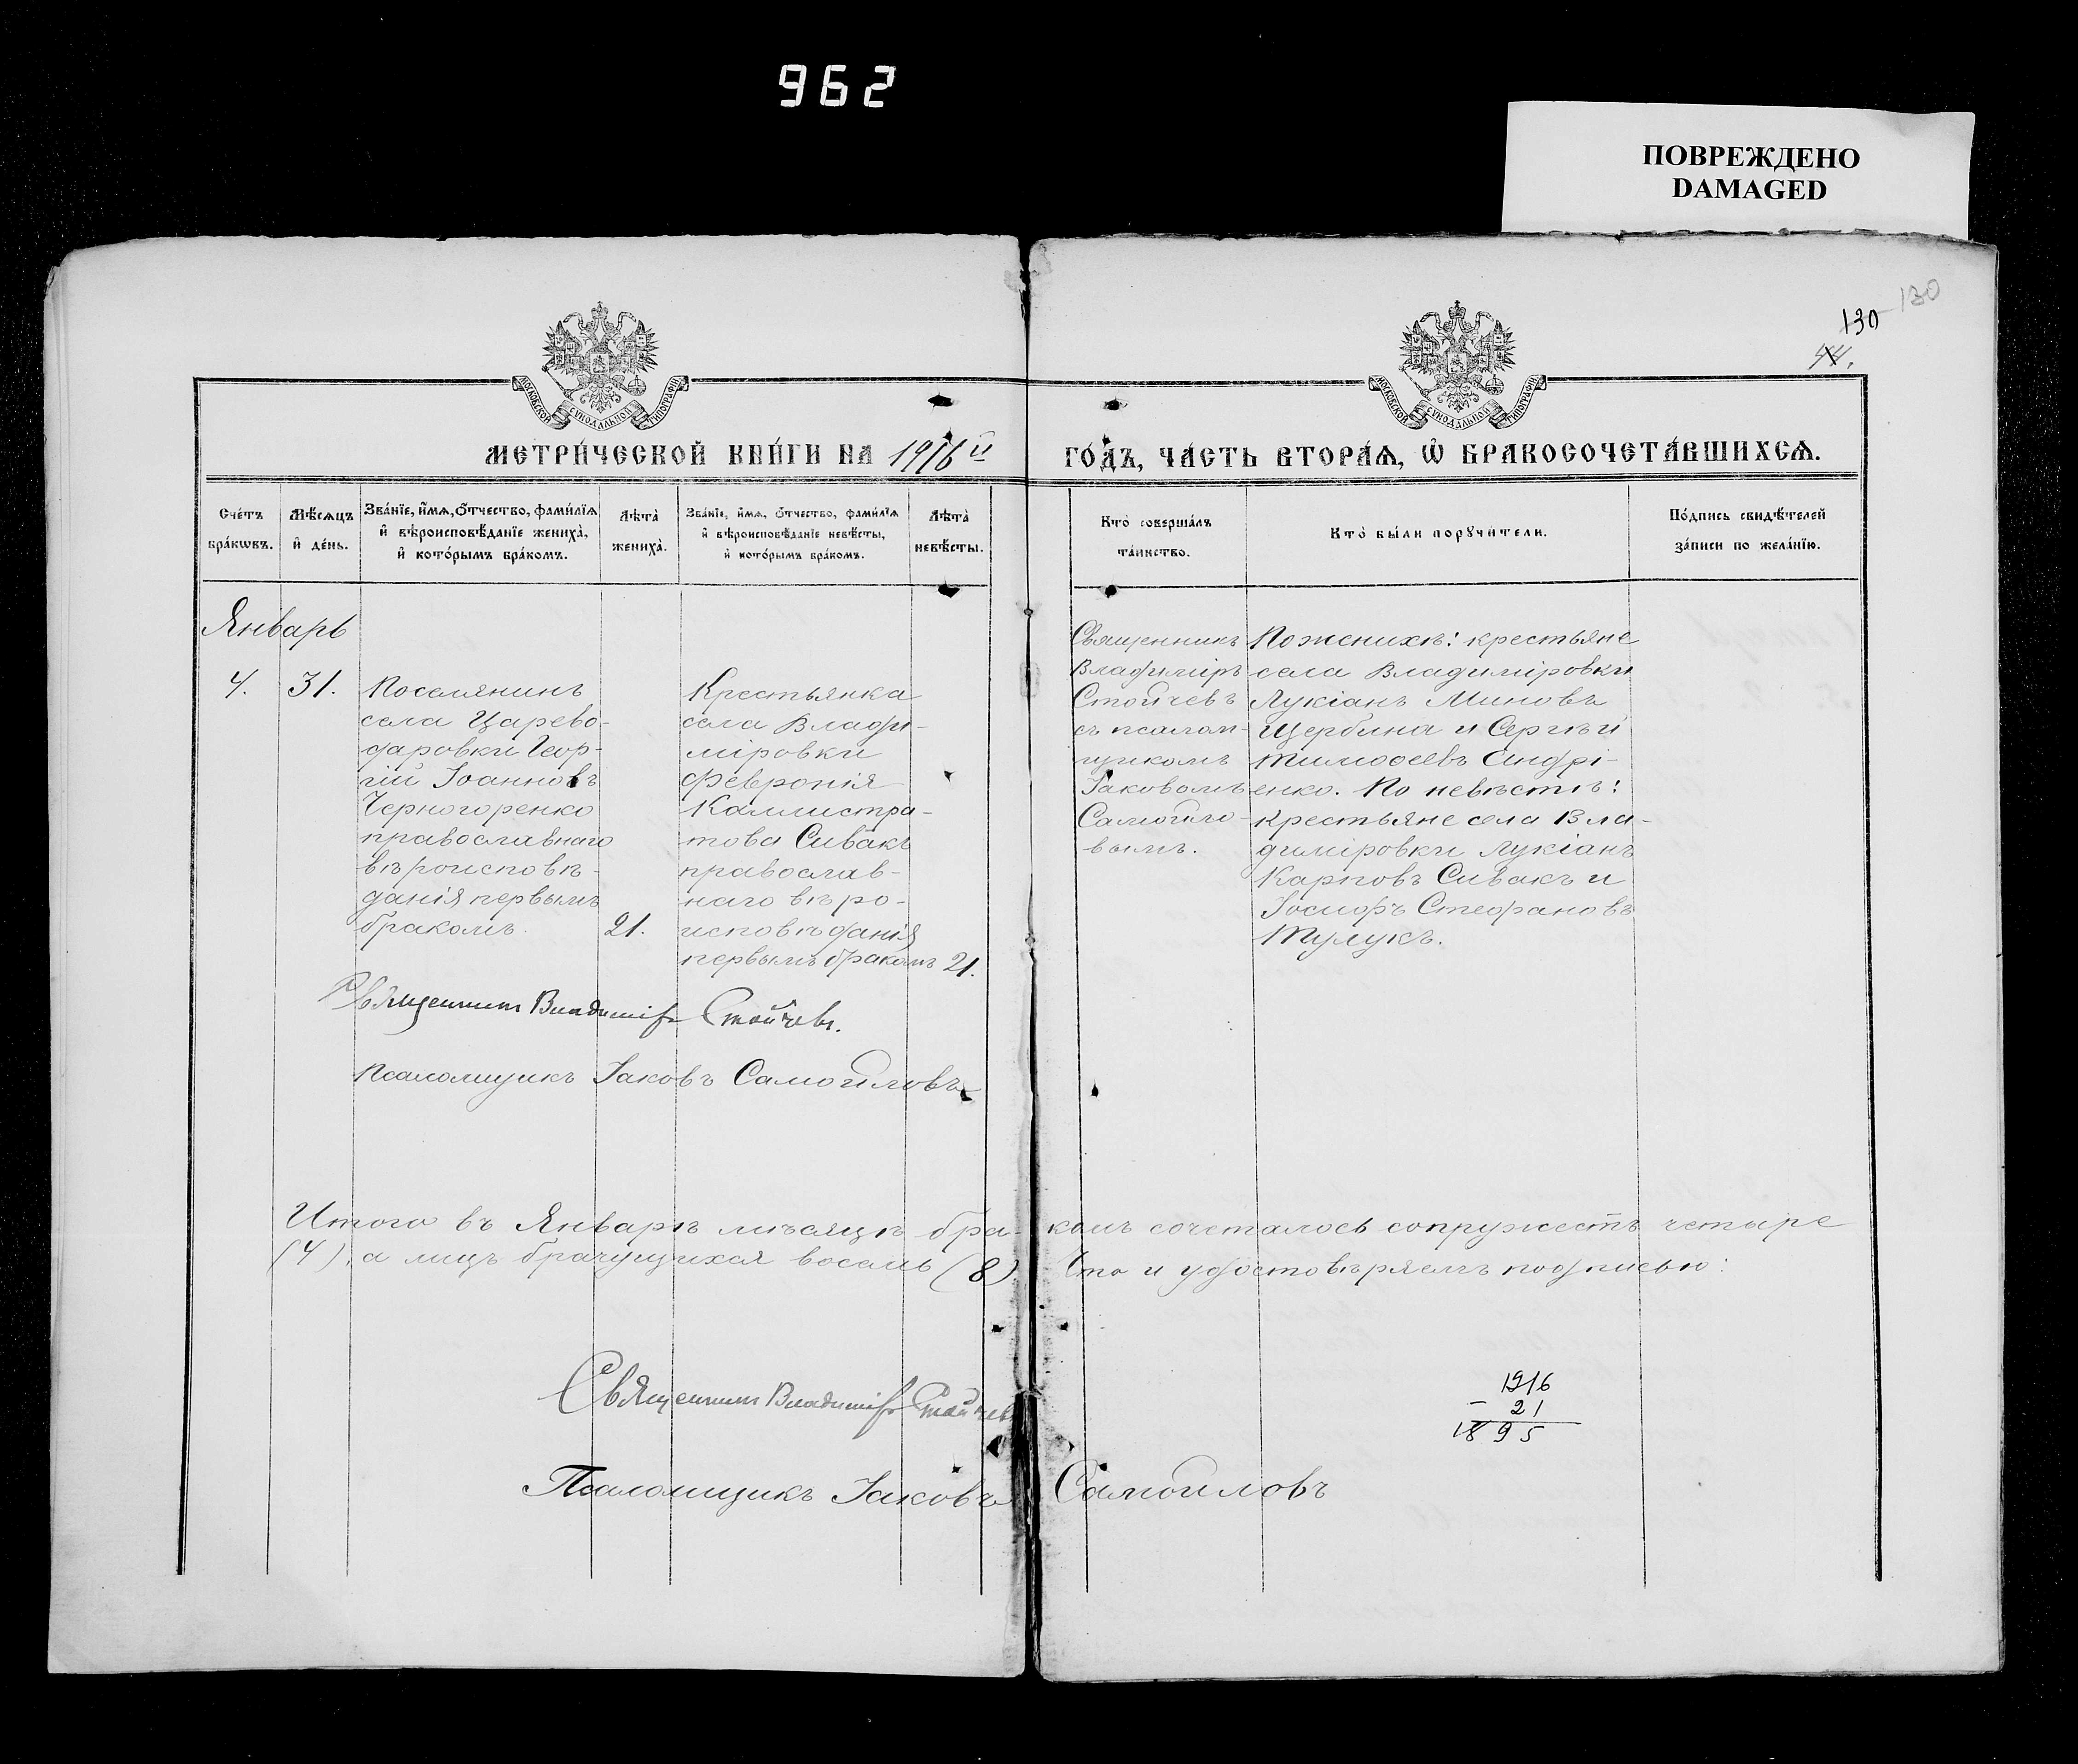 962
ПОВРЕЖДЕНО
DAMAGED
130
130
44.
МОСКОВСКОЙ СѴНОДАЛЬНОЙ ТИПОГРАФІИ
МОСКОВСКОЙ СѴНОДАЛЬНОЙ ТИПОГРАФІИ
МЕТРИ́ЧЕСКОЙ КНИ́ГИ НА 1916й ГО́ДЪ, ЧА́СТЬ ВТОРА́Ѧ, Ѡ҆ БРАКОСОЧЕТА́ВШИХСѦ.
Сче́тъ
бра́кѡвъ.
Мѣ́сѧцъ
и҆ де́нь.
Зва́нїе, и҆́мѧ, ѻ҆́тчество, фами́лїѧ
и҆ вѣроисповѣ́данїе жениха̀,
и҆ кото́рымъ бра́комъ.
Лѣта̀
жениха̀.
Зва́нїе, и҆́мѧ, ѻ҆́тчество, фами́лїѧ
и҆ вѣроисповѣ́данїе невѣ́сты,
и҆ кото́рымъ бра́комъ.
Лѣта̀
невѣ́сты.
Кто̀ соверша́лъ
та́инство.
Кто̀ бы́ли порꙋчи́тели.
По́дпись свидѣ́телей
за́писи по жела́нїю.
Январь
4.
31.
Поселянинъ
села Царево-
даровки Геор-
гій Іоанновъ
Черногоренко
православнаго
вѣроисповѣ-
данія первымъ
бракомъ
21.
Крестьянка
села Влади-
міровки
Февронія
Каллистра-
това Сивакъ
православ-
наго вѣро-
исповѣданія
первымъ бракомъ
21.
Священникъ
Владиміръ
Стойчевъ
съ псалом-
щикомъ
Іаковомъ
Самойло-
вымъ.
По женихѣ: крестьяне
села Владиміровки
Лукіанъ Миновъ
Щербина и Сергѣй
Тимофеевъ Андрі-
енко. По невѣстѣ:
крестьяне села Вла-
диміровки Лукіанъ
Карповъ Сивакъ и
Іосифъ Стефановъ
Тулукъ.
Священникъ Владиміръ Стойчевъ.
Псаломщикъ Іаковъ Самойловъ
Итого въ Январѣ мѣсяцѣ бра- комъ сочеталось супружествъ четыре
(4), а лицъ брачущихся восемь (8) Что и удостовѣряемъ подписью:
Священникъ Владиміръ Стойчевъ
1916
- 21
1895
Псаломщикъ Іаковъ Самойловъ